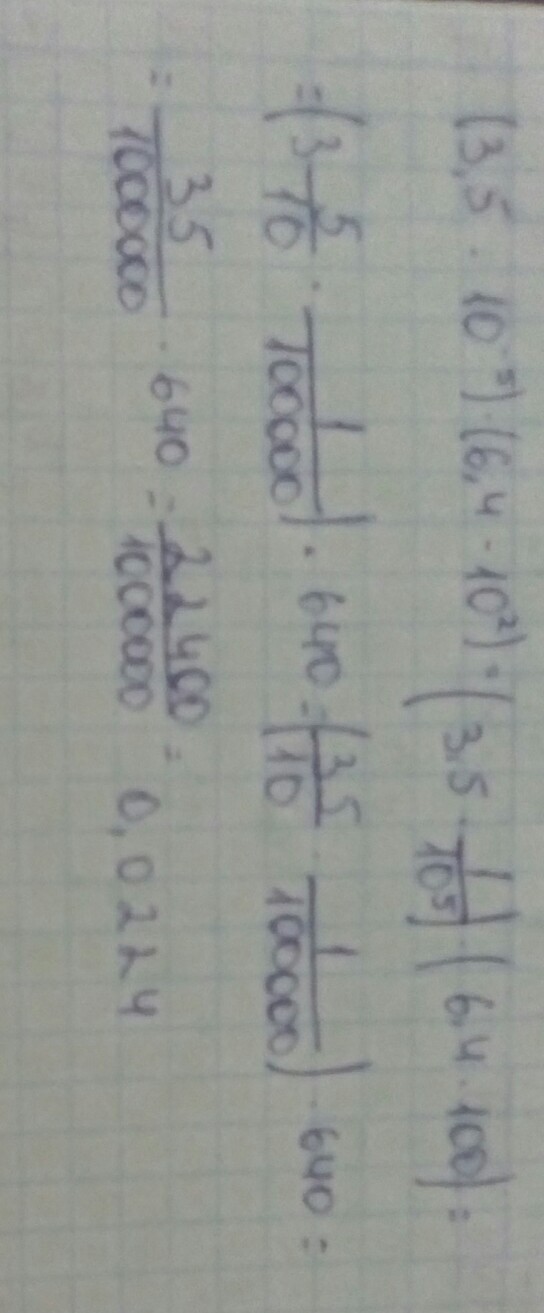 (3,5 · 10⁻⁵) · (6,4 · 10²) = (3,5 · 1/10⁵) (6,4 · 100) =
= (3 5/10 · 1/100000) · 640 = (35/10 · 1/100000) · 640 =
= 35/1000000 · 640 = 22400/1000000 = 0,0224